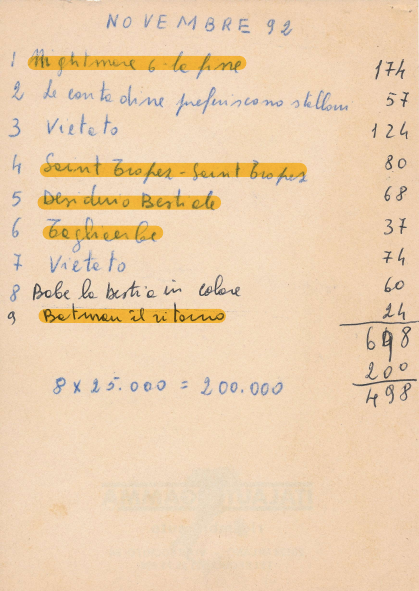 NOVEMBRE 92
1 Nightmare 6 - la fine 174
2 Le contadine preferiscono stalloni 57
3 Vietato 124
4 Saint Tropez - Saint Tropez 80
5 Desiderio Bestiale 68
6 Tagliaerbe 37
7 Vietato 74
8 Babe la bestia in calore 60
9 Batman il ritorno 24
698
200
8 x 25.000 = 200.000 498